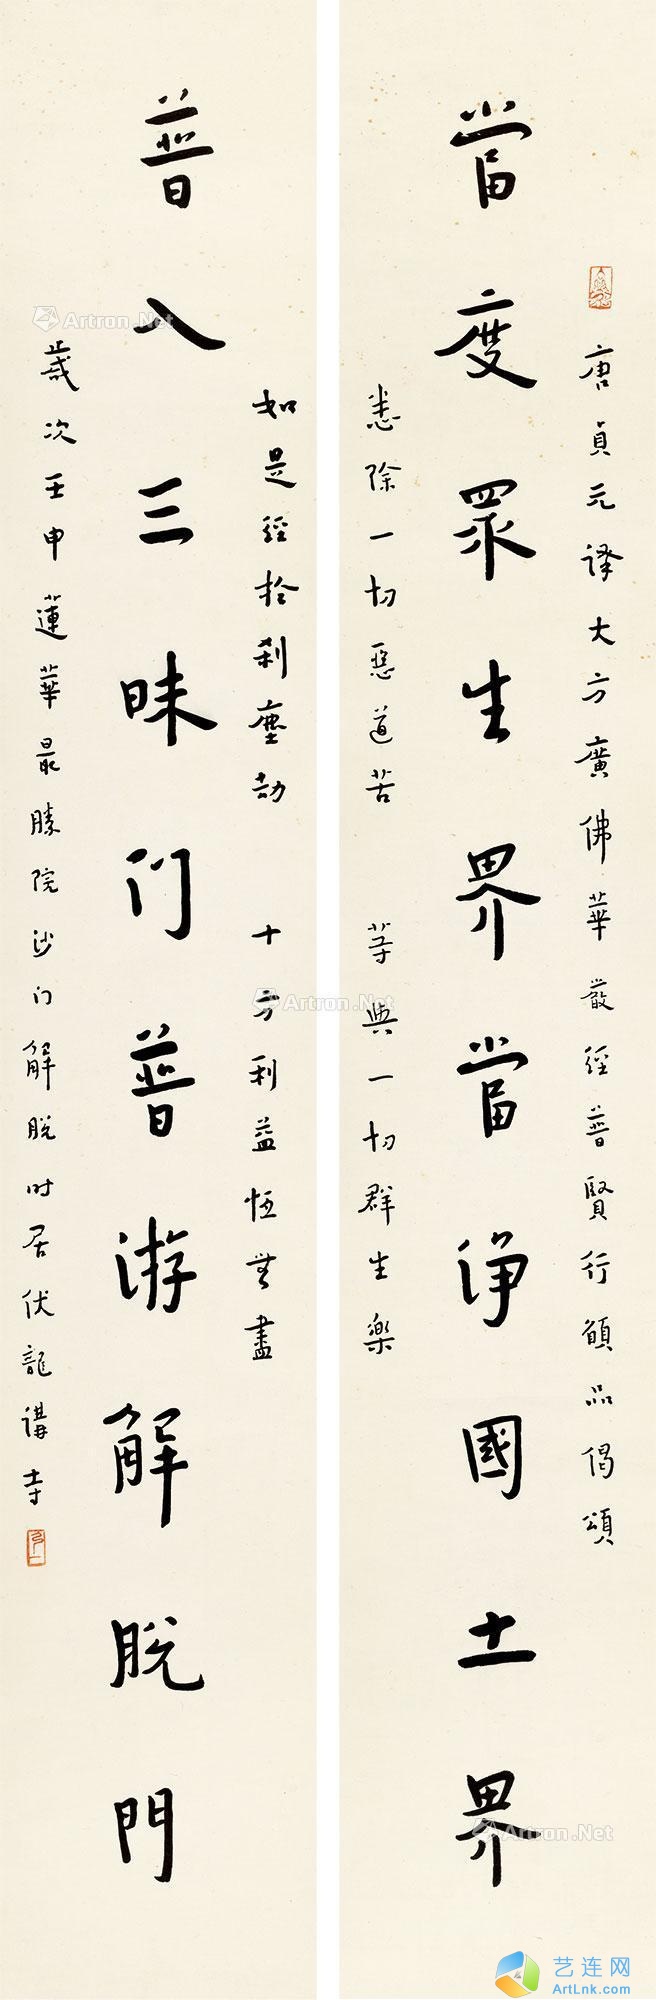 唐貞元譯大方廣佛華嚴經普賢行願品偈頌
當度眾生界當淨國土界
悉除一切惡道苦 等與一切群生樂
如是經於剎塵劫 十方利益恆無盡
普入三昧门普游解脫門
歲次壬申蓮華最勝院沙门解脫時居伏龍講寺
Artron.Net
Artron.Net
Artron.Net
艺连网
ArtLnk.com